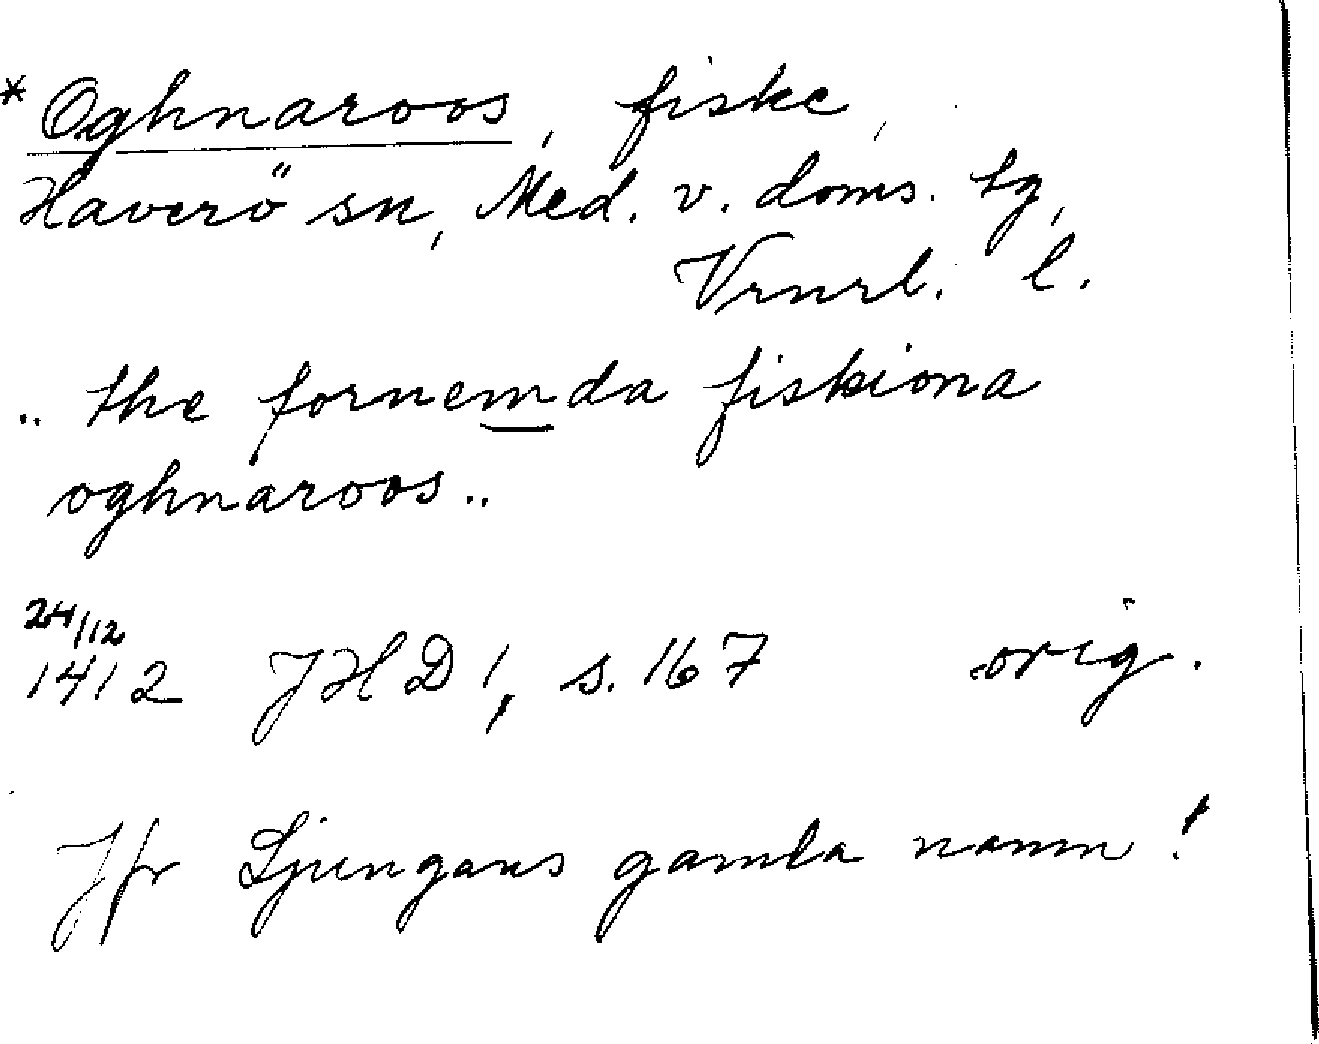 *Oghnaroos, fiske,
Haverö sn, Med. v. doms. tg,
Vrnrl. l.
.. the fornemda fiskiona
oghnaroos ..
24/12
1412 JHD 1, s. 167 orig.
Jfr Ljungans gamla namn!